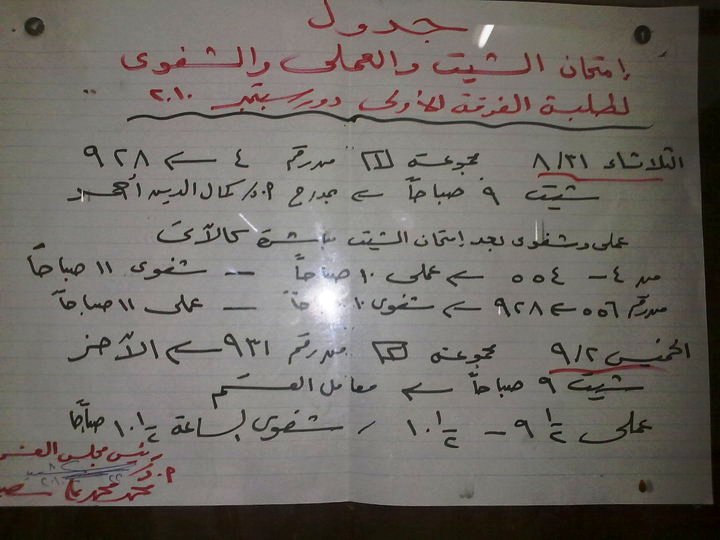 جدول
إمتحان الشيت والعملى والشفوى
لطلبة الفرقة الأولى دور سبتمبر ٢٠١٠
الثلاثاء ٨/٣١ مجموعة من رقم ٤ ← ٩٢٨
شيت ٩ صباحاً ← بمدرج أ.د/ كمال الدين أحمد
عملى وشفوى بعد إمتحان الشيت مباشرة كالآتى
من ٤ – ٥٥٤ ← عملى ١٠ صباحاً – شفوى ١١ صباحاً
من رقم ٥٥٦ ← ٩٢٨ ← شفوى ١٠ – عملى ١١ صباحاً
الخميس ٩/٢ مجموعة من رقم ٩٣١ ← الآخر
شيت ٩ صباحاً ← معامل القسم
عملى ٩ ١/٢ – ١٠ ١/٢ / شفوى الساعة ١٠ ١/٢ صباحاً
رئيس مجلس القسم
أ.د/
محمد محمد